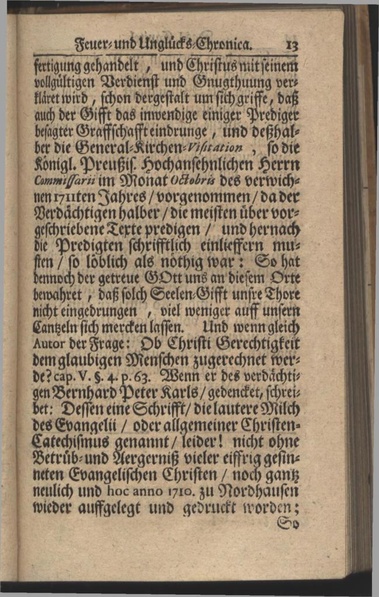 Feuer- und Unglücks-Chronica. 13
fertigung gehandelt, und Christus mit seinem
vollgültigen Verdienst und Gnugthuung ver-
kläret wird, schon dergestalt um sich griffe, daß
auch der Gifft das inwendige einiger Prediger
besagter Graffschafft eindrunge, und deßhal-
ber die General-Kirchen-Visitation, so die
Königl. Preußis. Hochansehnlichen Herrn
Commissarii im Monat Octobris des verwich-
nen 1711ten Jahres / vorgenommen / da der
Verdächtigen halber / die meisten über vor-
geschriebene Texte predigen / und hernach
die Predigten schrifftlich einlieffern mu-
sten / so löblich als nöthig war: So hat
dennoch der getreue GOtt uns an diesem Orte
bewahret, daß solch Seelen-Gifft unsre Thore
nicht eingedrungen, viel weniger auff unsern
Cantzeln sich mercken lassen. Und wenn gleich
Autor der Frage: Ob Christi Gerechtigkeit
dem glaubigen Menschen zugerechnet wer-
de? cap. V. §. 4. p. 63. Wenn er des verdächti-
gen Bernhard Peter Karls / gedencket, schrei-
bet: Dessen eine Schrifft / die lautere Milch
des Evangelii / oder allgemeiner Christen-
Catechismus genannt / leider! nicht ohne
Betrüb- und Aergerniß vieler eiffrig gesin-
neten Evangelischen Christen / noch gantz
neulich und hoc anno 1710. zu Nordhausen
wieder auffgelegt und gedruckt worden;
So